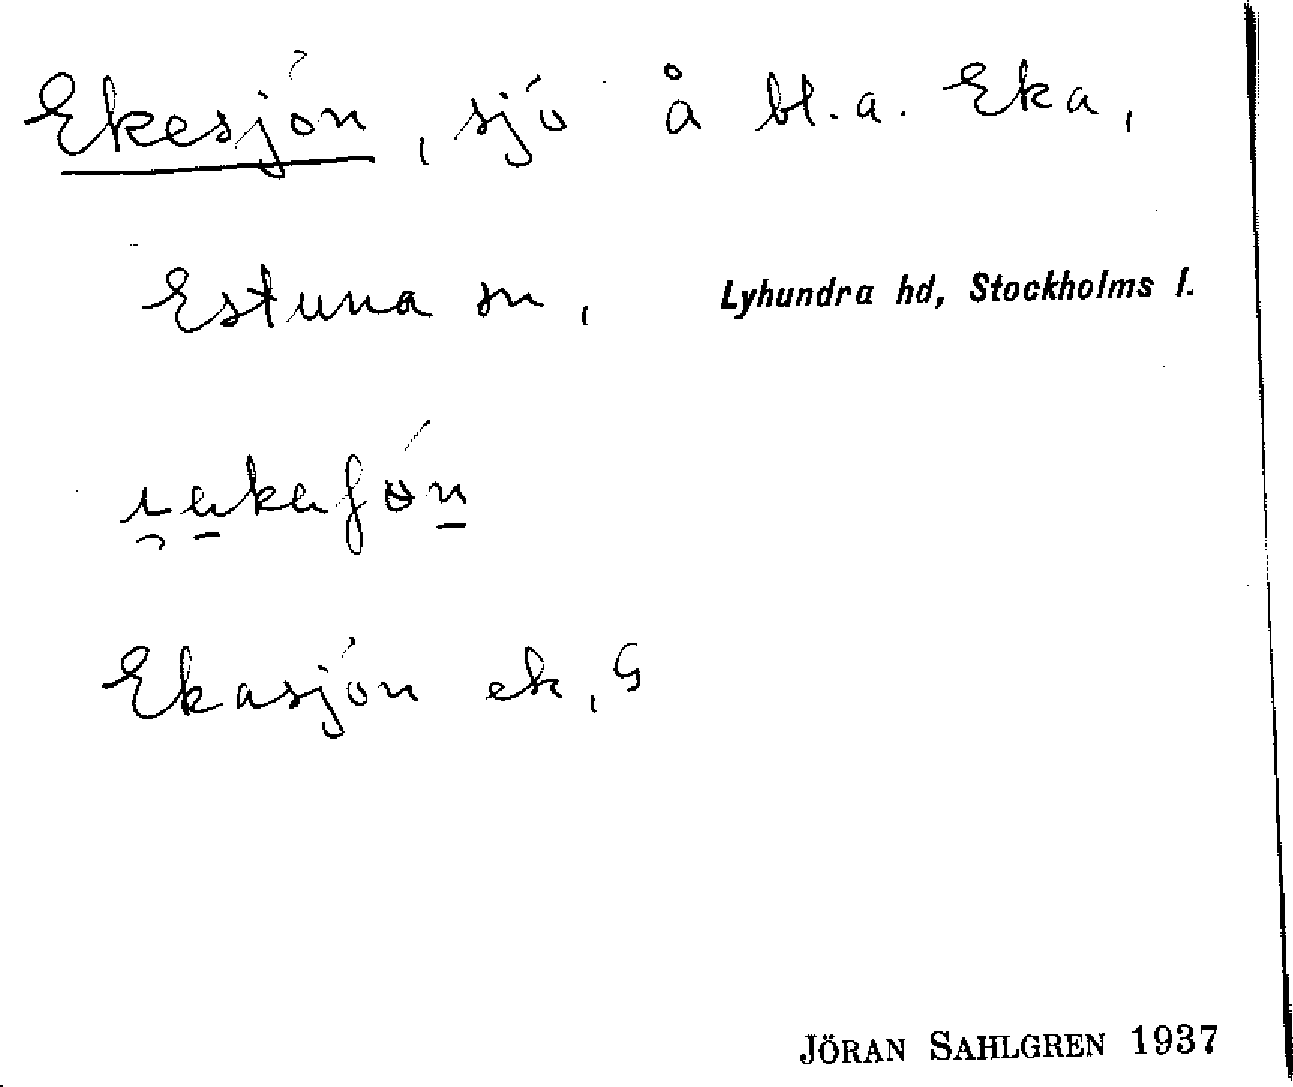 Ekesjön, sjö å bl.a. Eka,
Estuna sn, Lyhundra hd, Stockholms l.
Ekasjön ek, G
JÖRAN SAHLGREN 1937